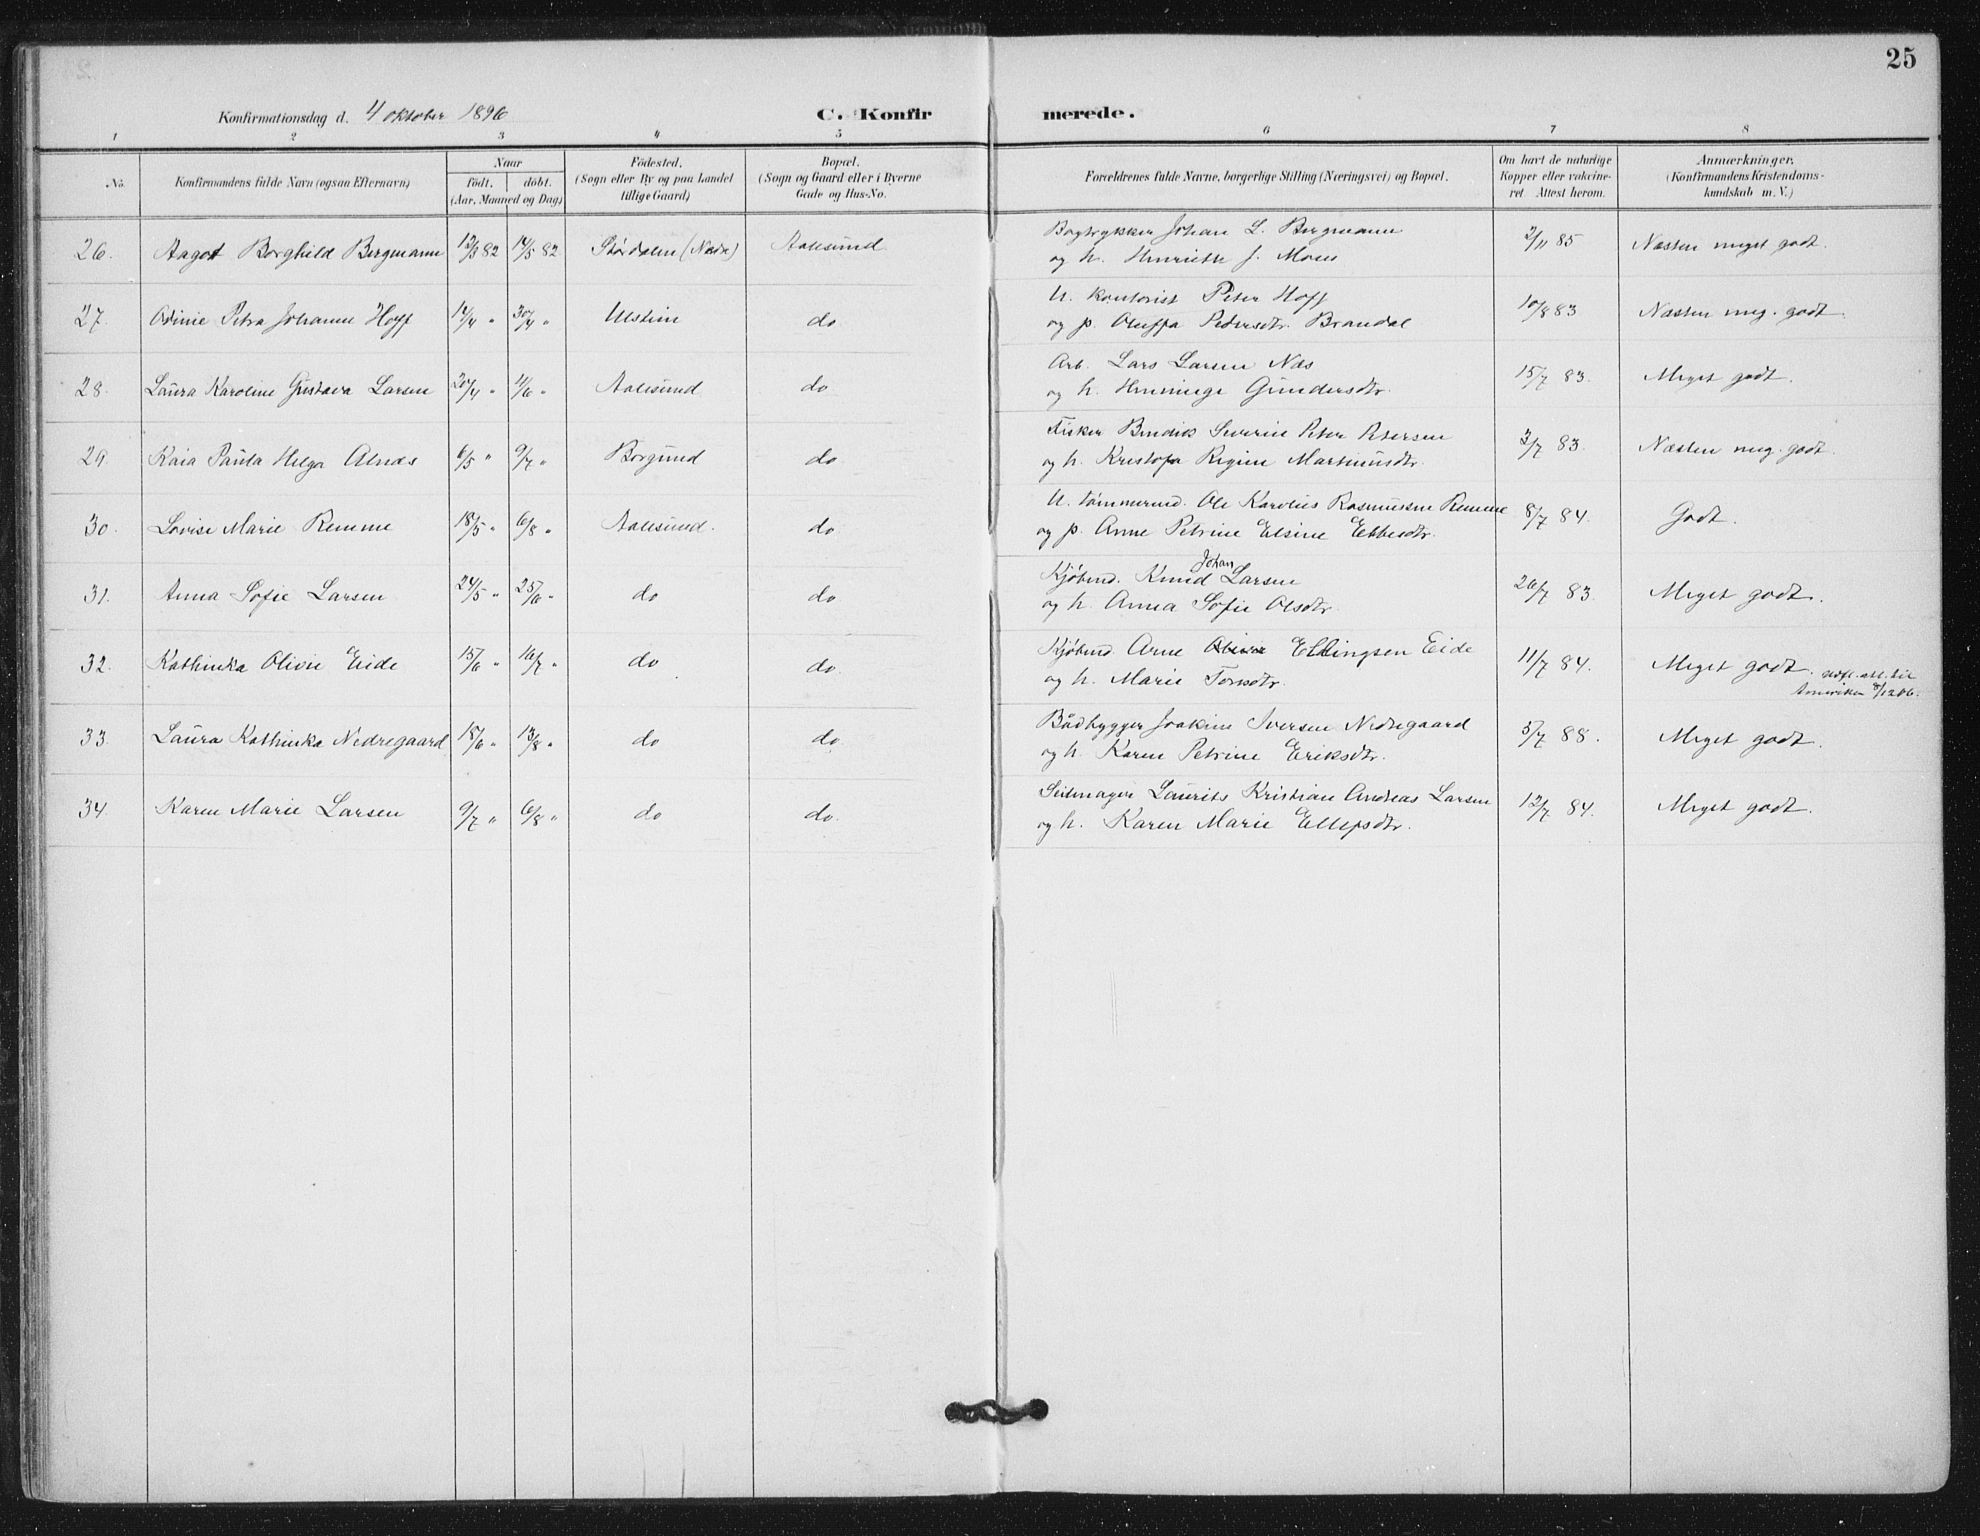 25
Konfirmationsdag d. 4 oktober 1896
C. Konfir merede.
1 2 3 4 5 6 7 8
No. Konfirmandens fulde Navn (ogsaa Efternavn) Naar födt. döbt. (Aar, Maaned og Dag) Födested. (Sogn eller By og paa Landet tillige Gaard) Bopæl. (Sogn og Gaard eller i Byerne Gade og Hus-No. Forældrenes fulde Navne, borgerlige Stilling (Næringsvei) og Bopæl. Om havt de naturlige Kopper eller vakcineret Attest herom. Anmærkninger. (Konfirmandens Kristendomskundskab m. V.)
26. Aagot Borghild Bergmann 12/3 82 14/5 82 Størdalen (Nedre) Aalesund Bogtrykker Johan L. Bergmann 2/11 85 Næsten meget godt.
og h. Henriette J. Moses
27. Odinie Petra Johanne Hoff 14/4 " 30/4 " Ulstein do U. kontorist Peter Hoff 10/8 83 Næsten meg. godt.
og p. Oluffa Pedersdtr. Brandal
28. Laura Karoline Gustava Larsen 20/4 " 11/6 " Aalesund do Arb. Lars Larsen Næs 15/7 83. Meget godt.
og h. Henninge Gundersdtr.
29. Kaia Paula Helga Alnæs 6/5 " 9/7 " Borgund do Fisker Bendik Severin Peter Petersen 3/7 83. Næsten meg. godt.
og h. Kristofa Regine Martinusdtr.
30. Lovise Marie Remme 18/5 " 6/8 " Aalesund. do U. tømmermd. Ole Karolius Rasmussen Remme 8/7 84. Godt.
og p. Anne Petrine Elsine Ebbesdtr.
31. Anna Sofie Larsen 24/5 " 25/6 " do do Kjøbmd. Knud Johan Larsen 26/7 83. Meget godt.
og h. Anna Sofie Olsdtr.
32. Kathinka Olivie Eide 15/6 " 16/7 " do do. Kjøbmd. Arne Ellingsen Eide 11/7 84. Meget godt. utfl. att. til
og h. Marie Tonsdtr. Amerika 8/12 06.
33. Laura Kathinka Nedregaard 18/6 " 13/8 " do do. Bådbygger Joakim Iversen Nedregaard 5/7 88. Meget godt.
og h. Karen Petrine Eriksdtr.
34. Karen Marie Larsen 9/7 " 6/8 " do do. Seilmager Laurits Kristian Andreas Larsen 12/7 84. Meget godt.
og h. Karen Marie Ellefsdtr.